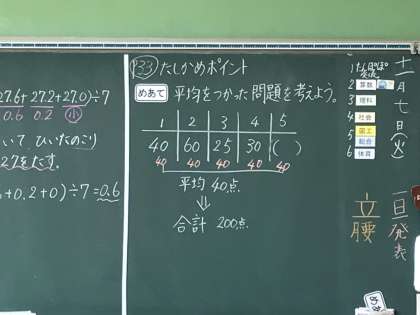 27.6+27.2+27.0)÷7
0.6 0.2 小
いて、ひいたのこり
27をたす。
+0.2+0)÷7=0.6
P33 たしかめポイント
めあて 平均をつかった問題を考えよう。
1 2 3 4 5
40 60 25 30 ( )
40 40 40 40 40
平均 40点
⇓
合計 200点
1
2 算数
3 理科
4 社会
5 図工
総合
6 体育
十一月七日(火)
一日一発表
立腰
めあ